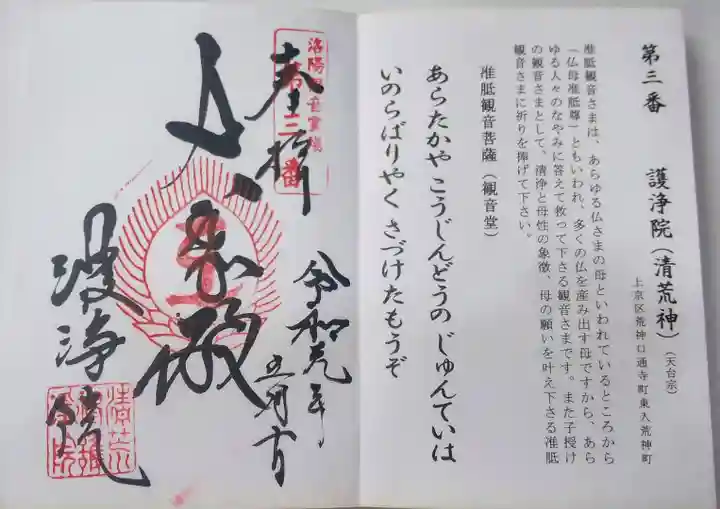 第三番 護浄院(清荒神)(天台宗)
上京区荒神口通寺町東入荒神町
准胝観音さまは、あらゆる仏さまの母といわれているところから
「仏母准胝尊」ともいわれ、多くの仏を産み出す母ですから、あら
ゆる人々のなやみに答えて救って下さる観音さまです。また子授け
の観音さまとして、清浄と母性の象徴、母の願いを叶え下さる准胝
観音さまに祈りを捧げて下さい。
准胝観音菩薩(観音堂)
あらたかや こうじんどうの じゅんていは
いのらばりやく さづけたもうぞ
洛陽観音霊場
第三番
奉拝
令和元年
護浄院